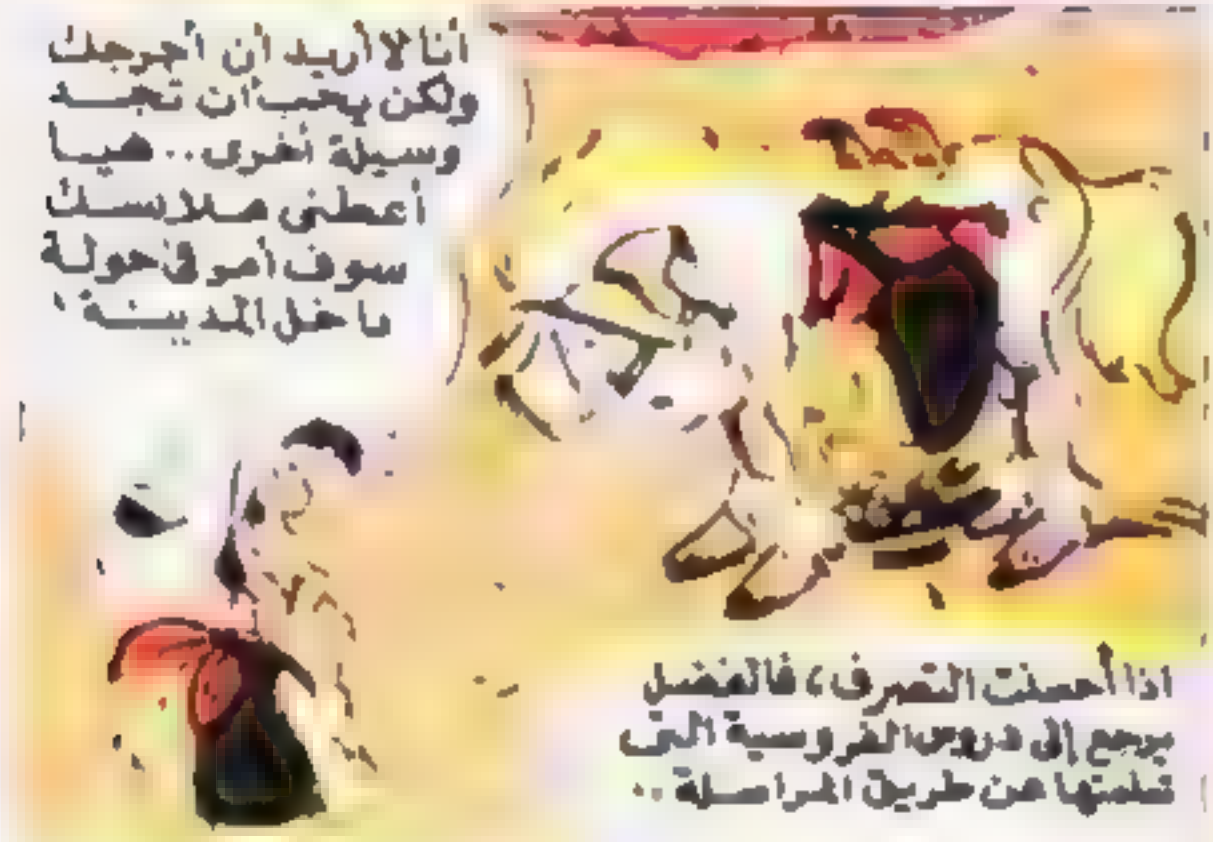 أنا لا أريد أن أجرجك
ولكن يجب أن تجد
وسيلة أخرى .. هيا
أعطني ملابسك
سوف أمر في جولة
داخل المدينة
اذا أحسنت التصرف ، فالفضل
يرجع إلى دروس الفروسية التي
تعلمتها عن طريق المراسلة ..